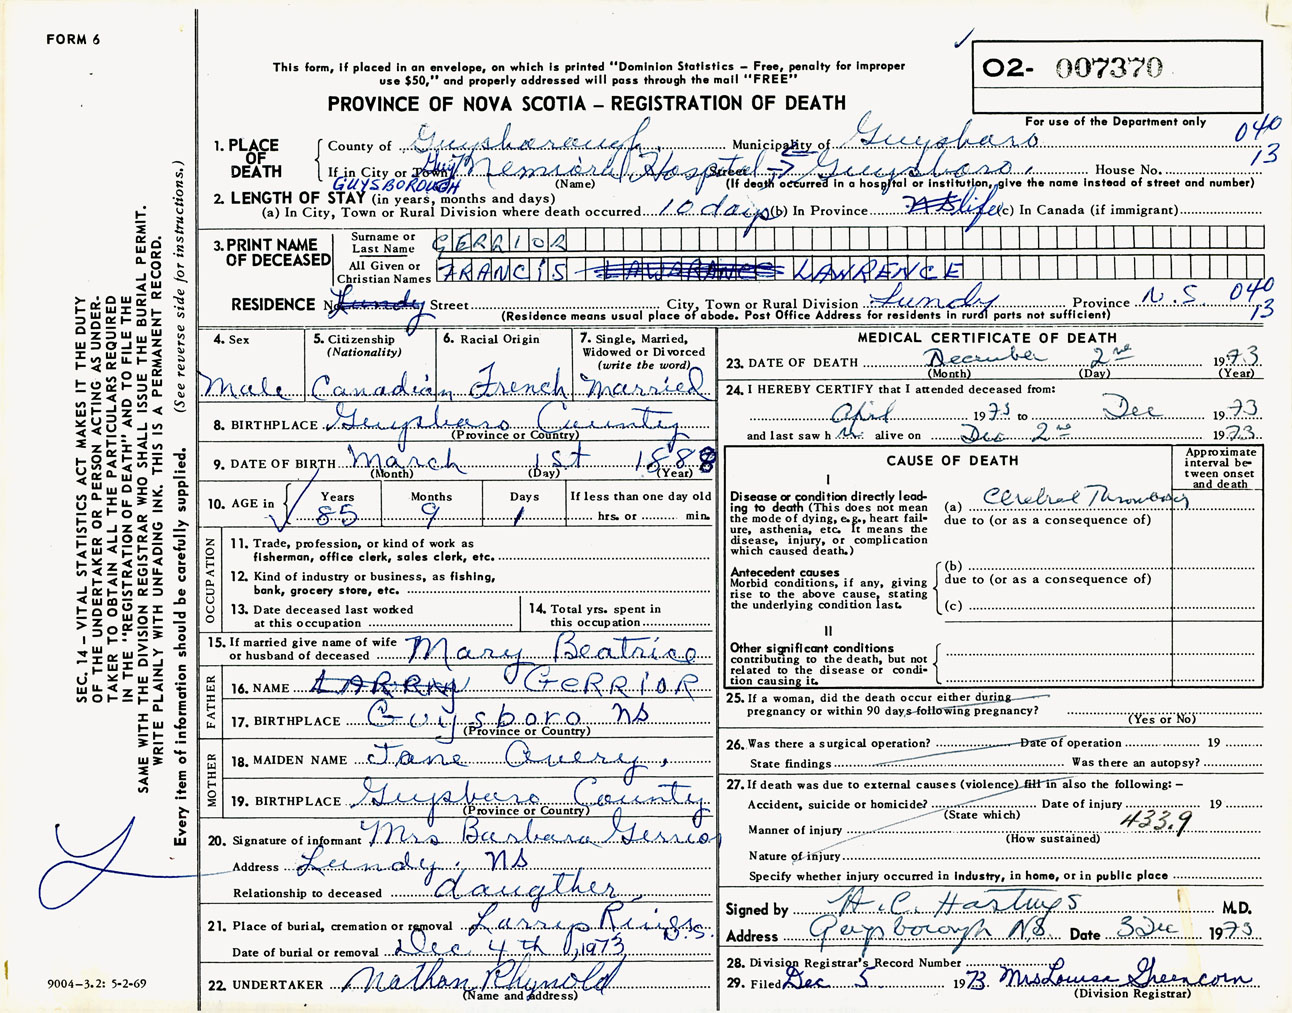 FORM 6
This form, if placed in an envelope, on which is printed "Dominion Statistics – Free, penalty for improper
use $50," and properly addressed will pass through the mail "FREE"
PROVINCE OF NOVA SCOTIA – REGISTRATION OF DEATH
O2- 007370
For use of the Department only
040
13
1. PLACE OF DEATH
County of Guysborough Municipality of Guysboro
If in City or Town Guy Memorial Hospital Street Guysboro House No.
GUYSBOROUGH (Name) (If death occurred in a hospital or institution, give the name instead of street and number)
2. LENGTH OF STAY (in years, months and days)
(a) In City, Town or Rural Division where death occurred 10 days (b) In Province NS life (c) In Canada (if immigrant)
3. PRINT NAME OF DECEASED
Surname or Last Name GERRIOR
All Given or Christian Names FRANCIS LAWRENCE
RESIDENCE No. Lundy Street City, Town or Rural Division Lundy Province N.S 040
13
(Residence means usual place of abode. Post Office Address for residents in rural parts not sufficient)
4. Sex
Male
5. Citizenship (Nationality)
Canadian
6. Racial Origin
French
7. Single, Married, Widowed or Divorced (write the word)
Married
8. BIRTHPLACE Guysboro County
(Province or Country)
9. DATE OF BIRTH March 1st 1888
(Month) (Day) (Year)
10. AGE in Years 85 Months 9 Days 1 If less than one day old
hrs. or min.
OCCUPATION
11. Trade, profession, or kind of work as
fisherman, office clerk, sales clerk, etc.
12. Kind of industry or business, as fishing,
bank, grocery store, etc.
13. Date deceased last worked
at this occupation
14. Total yrs. spent in
this occupation
15. If married give name of wife
or husband of deceased Mary Beatrice
FATHER
16. NAME LARRY GERRIOR
17. BIRTHPLACE Guysboro NS
(Province or Country)
MOTHER
18. MAIDEN NAME Jane Avery,
19. BIRTHPLACE Guysboro County
(Province or Country)
20. Signature of informant Mrs Barbara Gerrior
Address Lundy, NS
Relationship to deceased daugther
21. Place of burial, cremation or removal Larrys River N.S.
Date of burial or removal Dec 4th, 1973
22. UNDERTAKER Nathan Rhynold
(Name and address)
MEDICAL CERTIFICATE OF DEATH
23. DATE OF DEATH December 2nd 1973
(Month) (Day) (Year)
24. I HEREBY CERTIFY that I attended deceased from:
April 1973 to Dec 1973
and last saw him alive on Dec 2nd 1973
CAUSE OF DEATH
Approximate interval between onset and death
I
Disease or condition directly leading to death (This does not mean the mode of dying, e.g., heart failure, asthenia, etc. It means the disease, injury, or complication which caused death.)
(a) Cerebral Thrombosis
due to (or as a consequence of)
Antecedent causes
Morbid conditions, if any, giving rise to the above cause, stating the underlying condition last.
(b)
due to (or as a consequence of)
(c)
II
Other significant conditions contributing to the death, but not related to the disease or condition causing it.
25. If a woman, did the death occur either during
pregnancy or within 90 days following pregnancy?
(Yes or No)
26. Was there a surgical operation? Date of operation 19
State findings Was there an autopsy?
27. If death was due to external causes (violence) fill in also the following: –
Accident, suicide or homicide? Date of injury 19
(State which)
433.9
Manner of injury
(How sustained)
Nature of injury
Specify whether injury occurred in industry, in home, or in public place
Signed by H. C. Hastings M.D.
Address Guysborough N.S. Date 3 Dec 1973
28. Division Registrar's Record Number
29. Filed Dec 5 1973. Mrs Louise Greencorn
(Division Registrar)
SEC. 14 – VITAL STATISTICS ACT MAKES IT THE DUTY
OF THE UNDERTAKER OR PERSON ACTING AS UNDER-
TAKER TO OBTAIN ALL THE PARTICULARS REQUIRED
IN THE "REGISTRATION OF DEATH" AND TO FILE THE
SAME WITH THE DIVISION REGISTRAR WHO SHALL ISSUE THE BURIAL PERMIT.
WRITE PLAINLY WITH UNFADING INK. THIS IS A PERMANENT RECORD.
Every item of information should be carefully supplied. (See reverse side for instructions.)
9004-3.2: 5-2-69